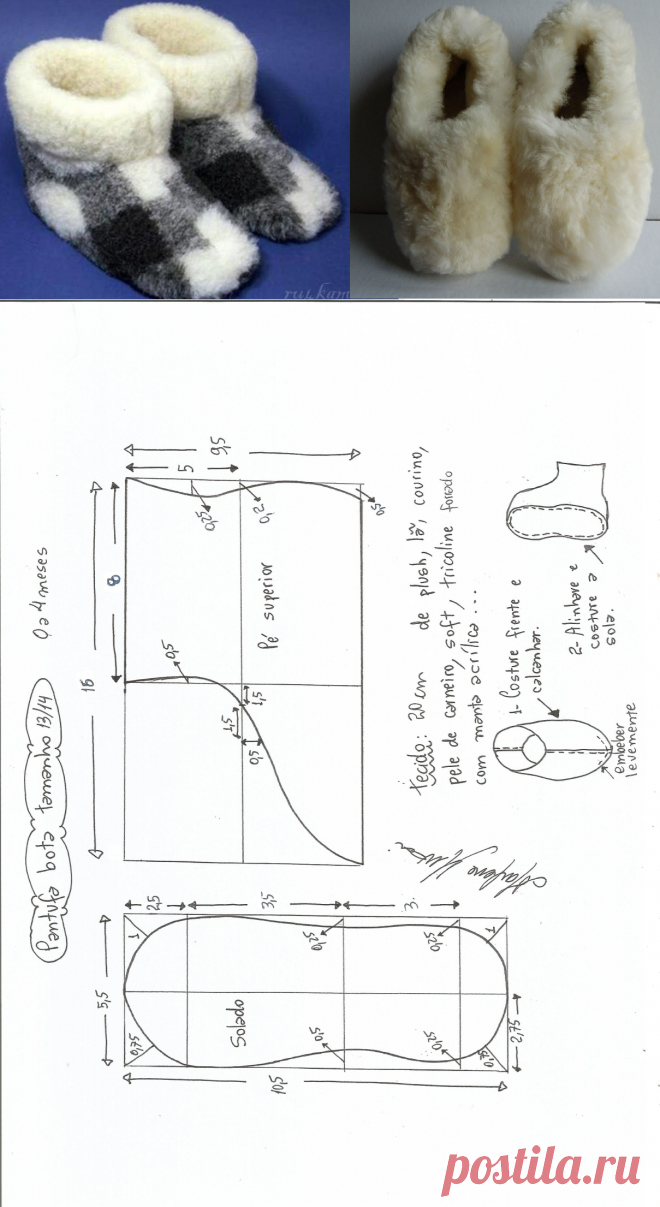 Pantufa bota tamanho 13/14
0 a 4 meses
9,5
5
0,25
0,2
0,5
8
15
Pé superior
0,5
1,5
1,5
0,5
tecido: 20cm de plush, lã, courino,
pele de carneiro, soft, tricoline forrado
com manta acrílica...
1- Costure frente e
calcanhar.
embeber
levemente
2- Alinhave e
costure a
sola.
2,5
3,5
3
1
0,25
0,25
1
5,5
Solado
0,75
0,5
0,25
0,75
2,75
10,5
postila.ru